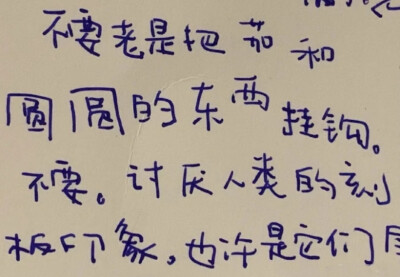 不要老是把茄和
圆圆的东西挂钩。
不要。讨厌人类的刻
板印象,也许是它们